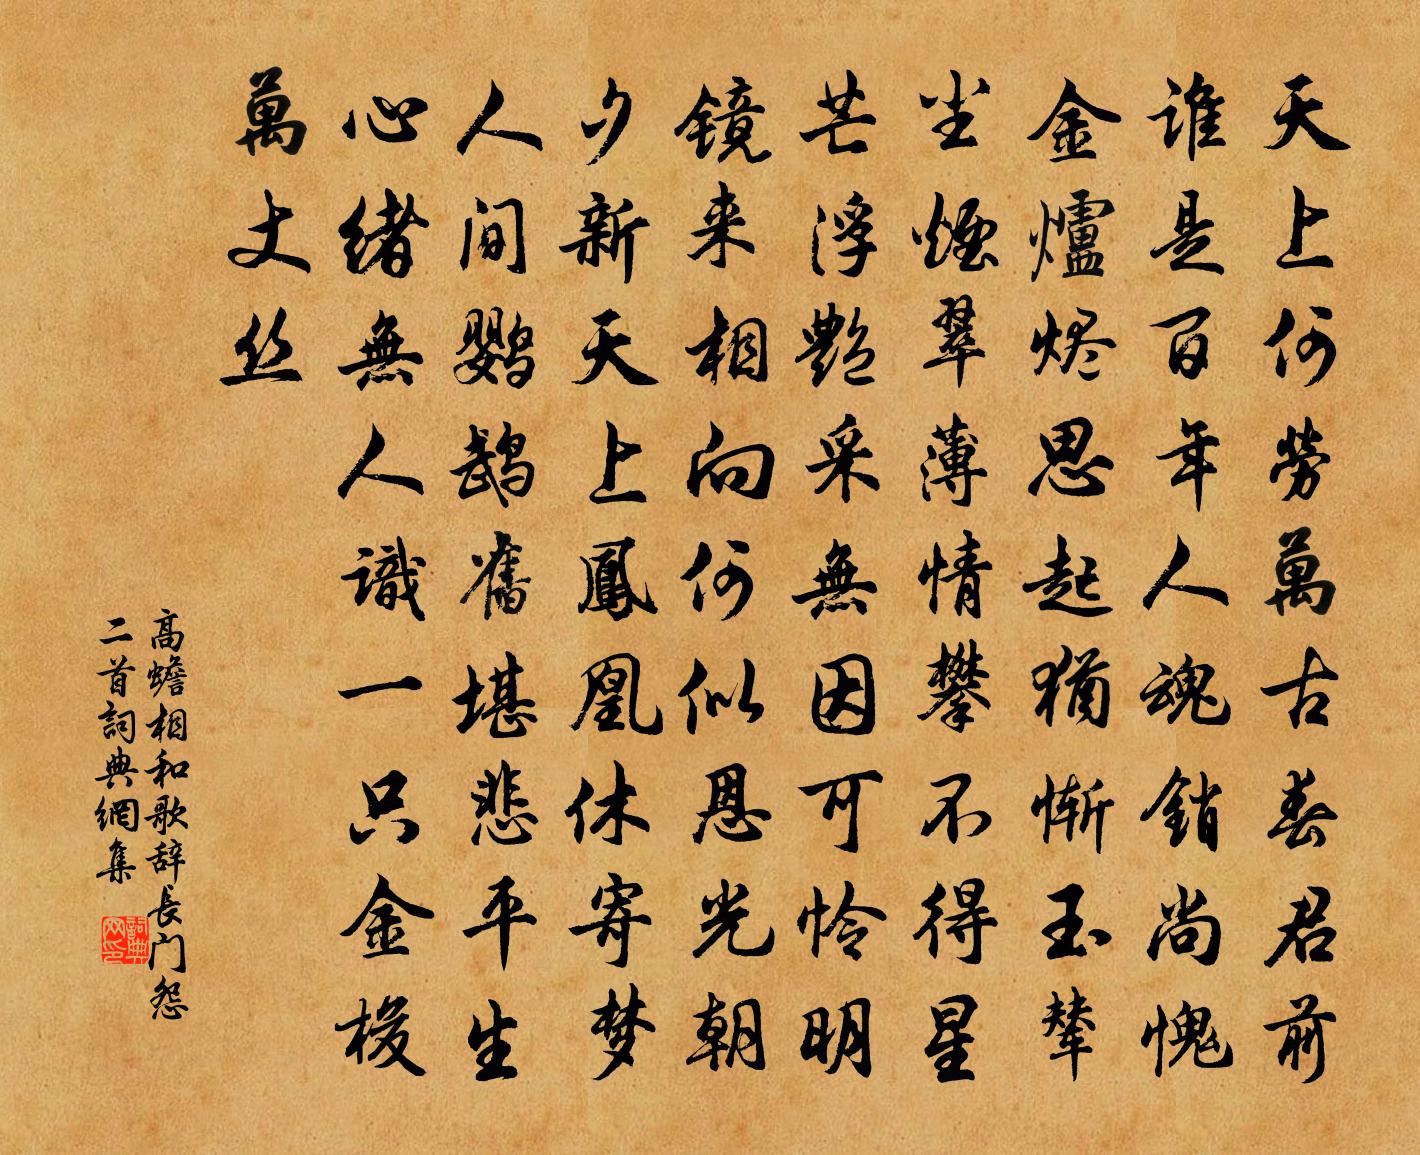 天上何勞萬古春君前
谁是百年人魂銷尚愧
金爐烬思起猶惭玉辇
尘煙翠薄情攀不得星
芒浮艷采無因可怜明
镜来相向何似恩光朝
夕新天上鳳凰休寄梦
人间鹦鹉舊堪悲平生
心緒無人識一只金梭
萬丈丝
高蟾相和歌辞長门怨
二首詞典網集
詞典网印